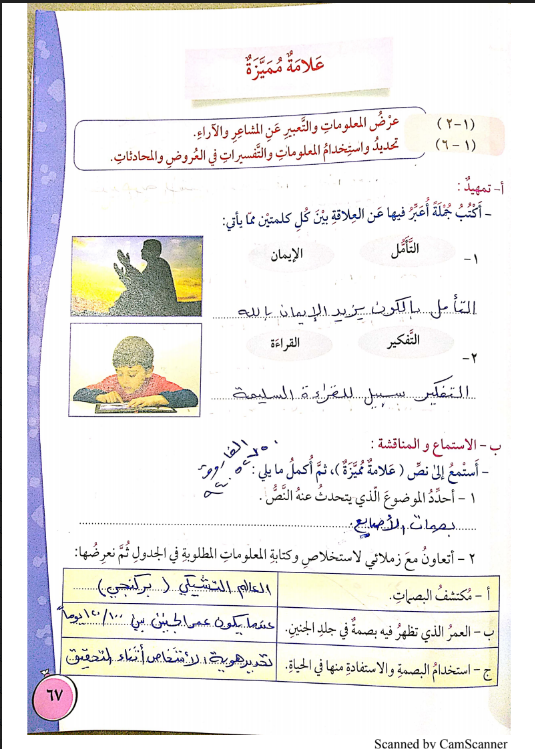 عَلامَةٌ مُمَيَّزَةٌ
(١-٢) عرْضُ المعلوماتِ والتَّعبيرِ عَنِ المشاعِرِ والآراءِ.
(١-٦) تحديدُ واستِخدامُ المعلوماتِ والتَّفسيراتِ في العُروضِ والمحادثاتِ.
أ- تمهيدٌ :
- أَكْتُبُ جُمْلَةً أُعَبِّرُ فيها عَن العِلاقةِ بَيْنَ كُلِ كلمتيْن ممّا يأتي:
١- التَّأَمُّل الإيمان
التأمل بالكون يزيد الإيمان بالله
٢- التَّفكير القراءَة
التفكير سبيل للقراءة السليمة
ب- الاستماع و المناقشة :
- أَستمعُ إلى نصِّ ( عَلامةٌ مُمَيَّزَةٌ )، ثمَّ أُكملُ ما يلي:
١ - أحدِّدُ الموضوعَ الّذي يتحدثُ عنهُ النَّصُّ.
بصمات الأصابع.
٢ - أتعاونُ معَ زملائي لاستخلاصِ وكتابةِ المعلوماتِ المطلوبةِ في الجدولِ ثُمَّ نعرِضُها:
أ - مُكتشفُ البصماتِ. العالم التشيكي ( بركنجي )
ب- العمرُ الذي تظهرُ فيه بصمةٌ في جلدِ الجنينِ. عندما يكون عمر الجنين بين ١٠٠/١٢٠ يوماً
ج - استخدامُ البصمةِ والاستفادةِ منها في الحياةِ. تحديد هوية الأشخاص أثناء التحقيق
٦٧
Scanned by CamScanner